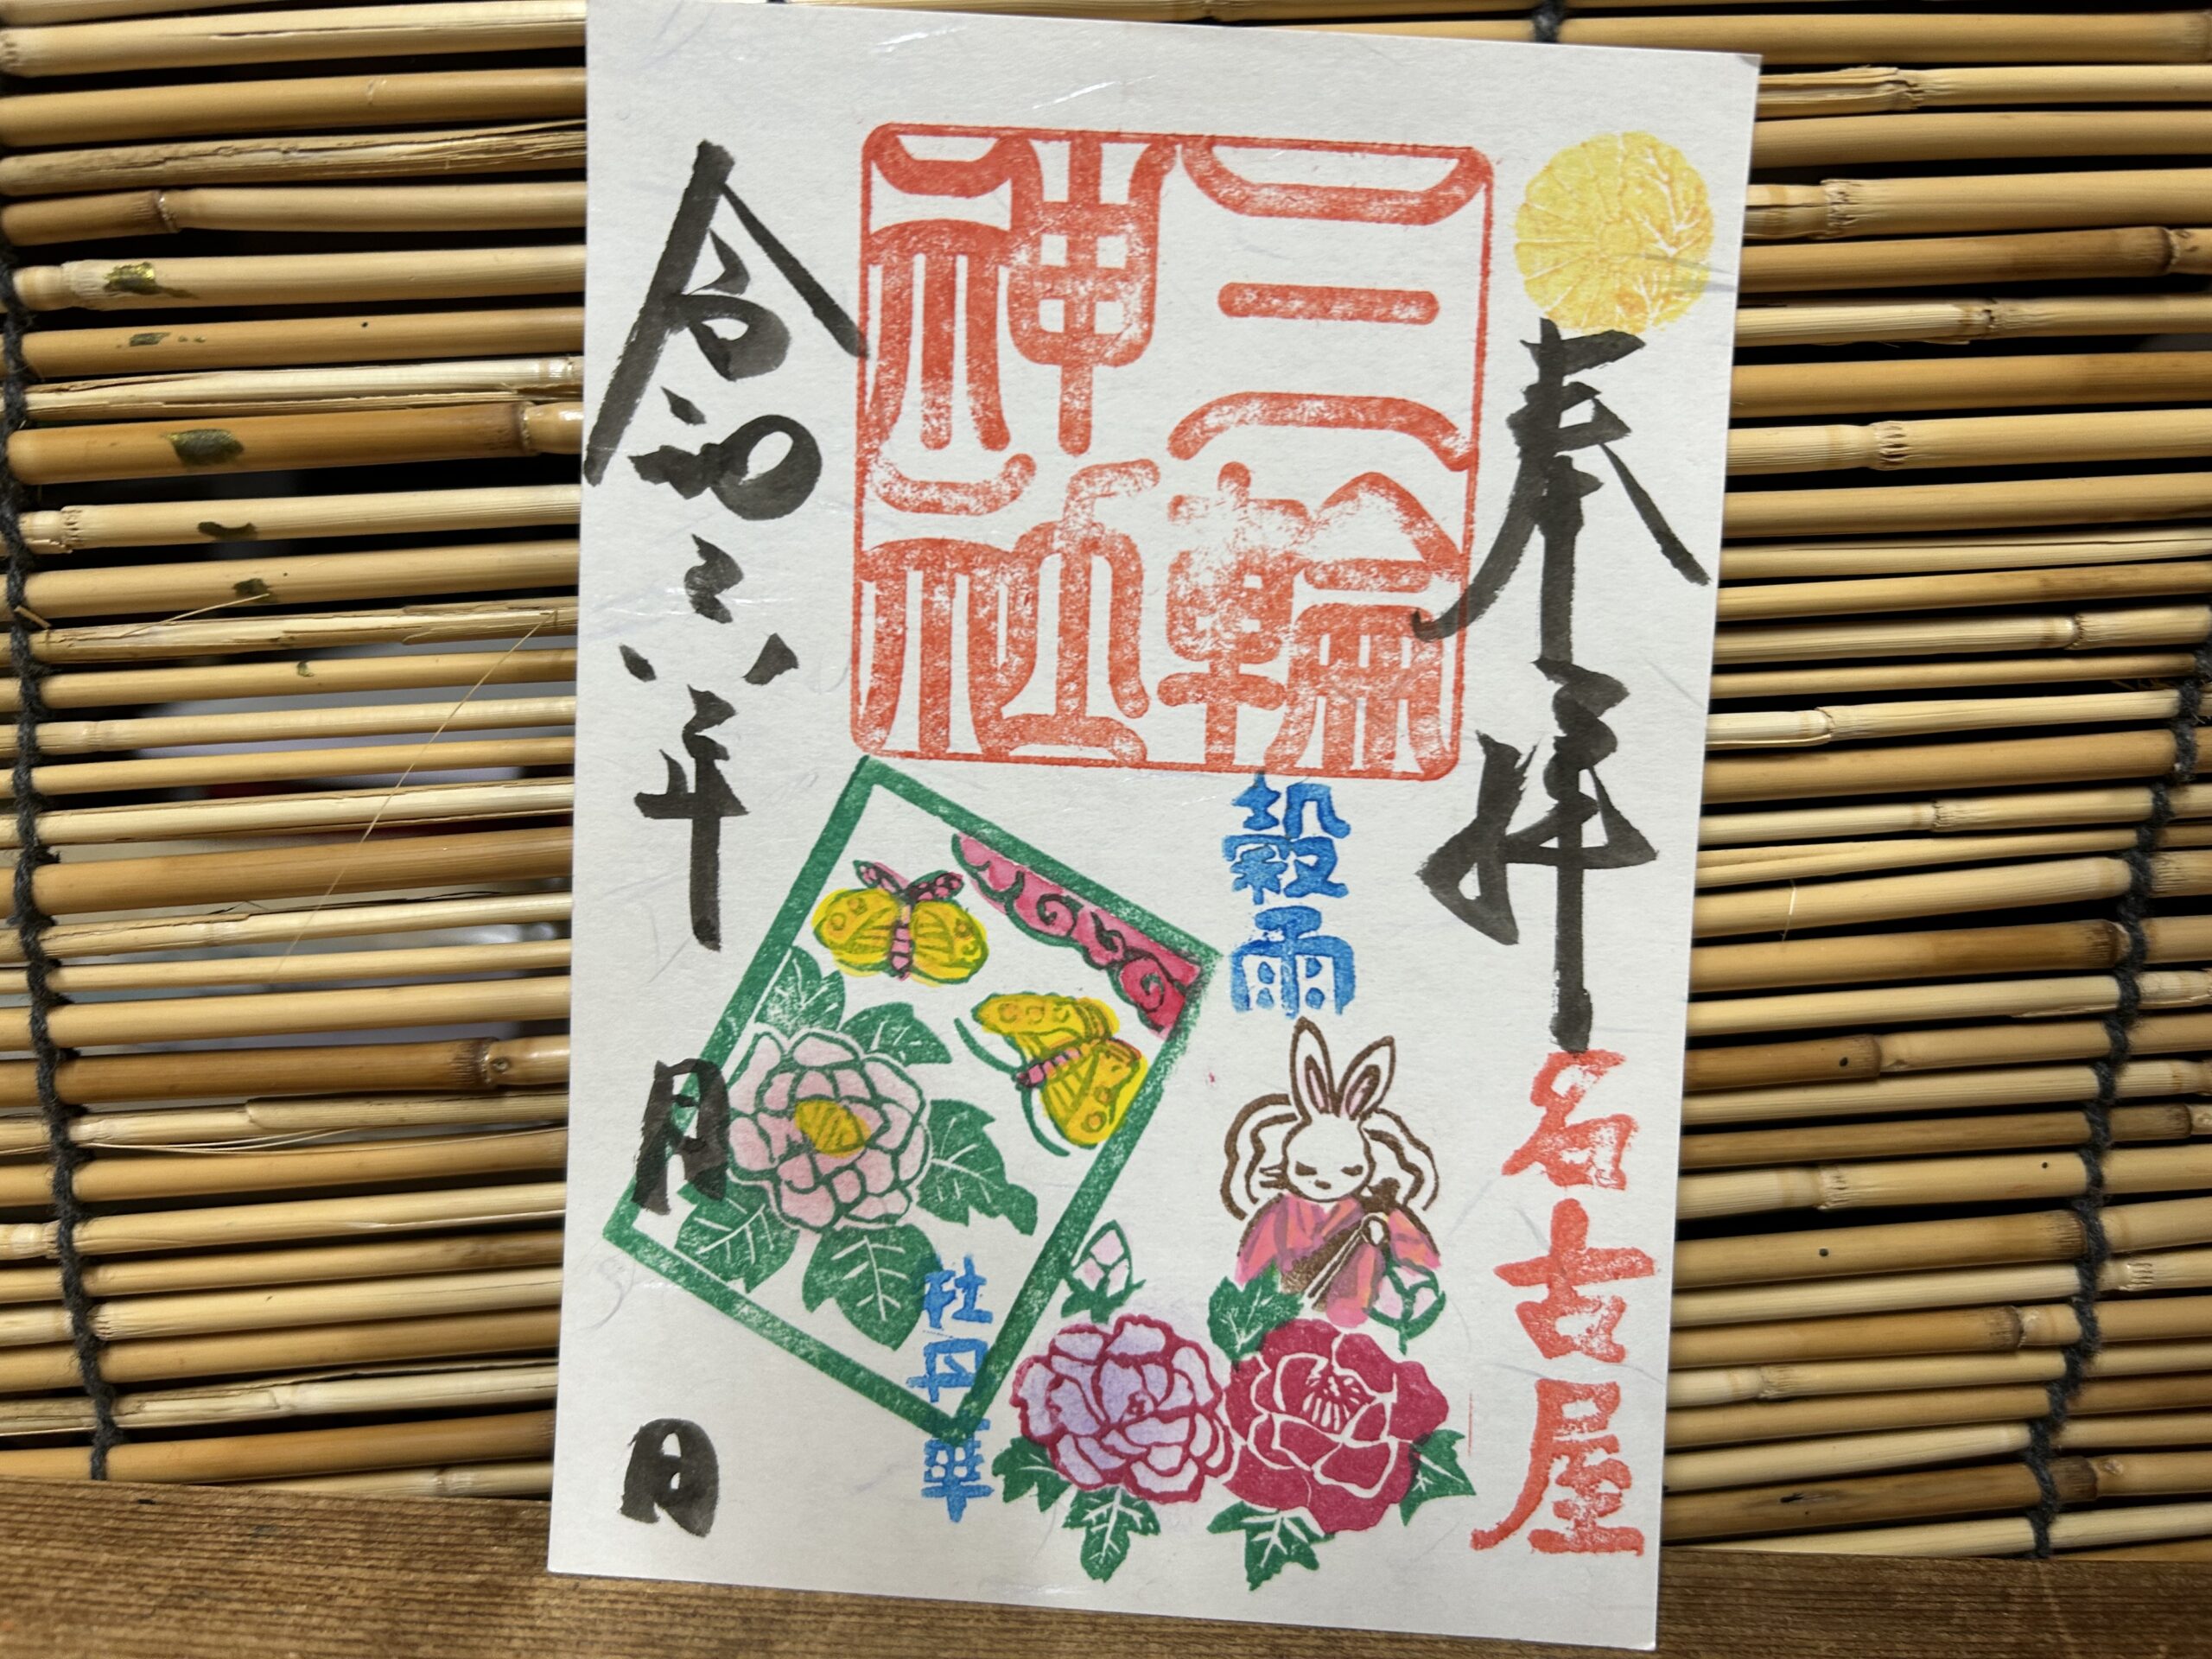 奉拝
名古屋
三輪
神社
穀雨
牡丹華
令和六年
月
日